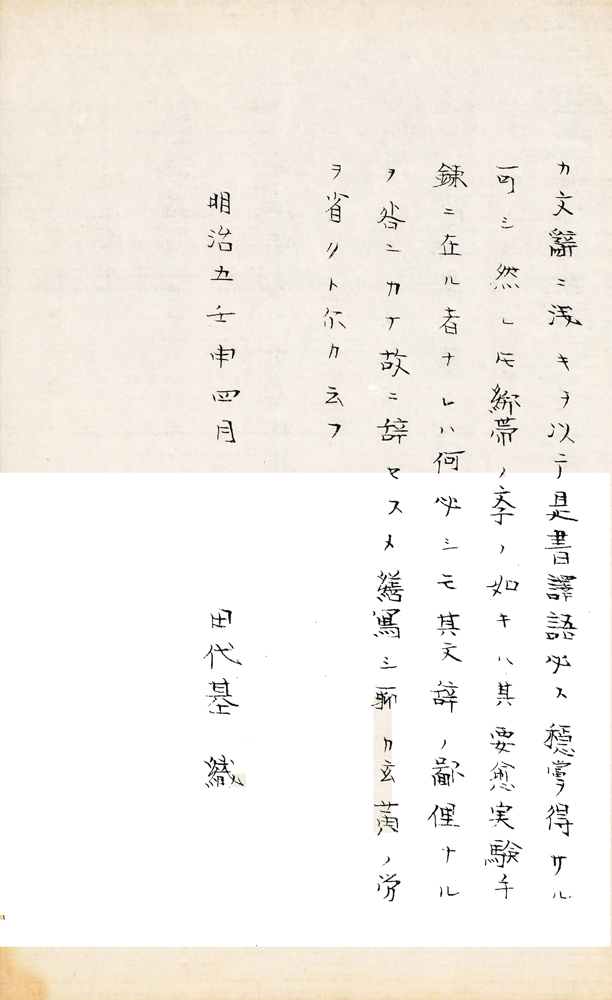 カ文辭ニ浅キヲ以テ是書譯語必ス穏當ヲ得サル
可シ然レ𪜈繃帯ノ李ノ如キハ其要愈実驗手
錬ニ在ル者ナレハ何必シモ其文辞ノ鄙俚ナル
ヲ咎ンカナ故ニ辞セスメ繕寫シ聊カ玄黄ノ労
ヲ省クト尓カ云フ
明治五壬申四月
田代基織